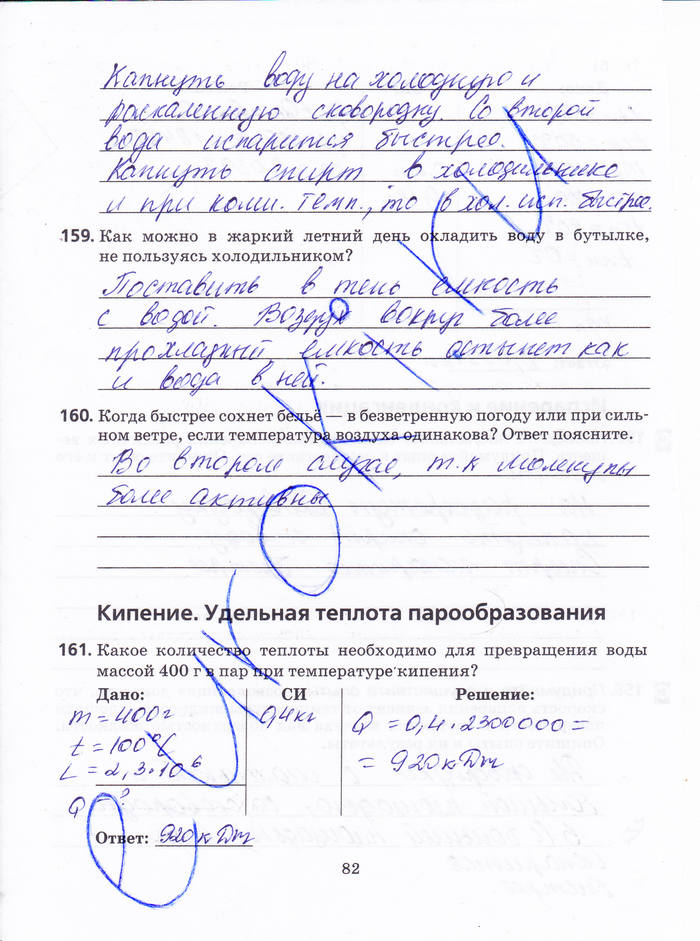 Капнуть воду на холодную и
раскаленную сковородку. Со второй
вода испарится быстрее.
Капнуть спирт в холодильнике
и при комн. темп., то в хол. исп. быстрее.
159. Как можно в жаркий летний день охладить воду в бутылке,
не пользуясь холодильником?
Поставить в тень емкость
с водой. Воздух вокруг более
прохладный, емкость остынет как
и вода в ней.
160. Когда быстрее сохнет бельё — в безветренную погоду или при силь-
ном ветре, если температура воздуха одинакова? Ответ поясните.
Во втором случае, т.к молекулы
более активны.
Кипение. Удельная теплота парообразования
161. Какое количество теплоты необходимо для превращения воды
массой 400 г в пар при температуре кипения?
Дано: СИ Решение:
m = 400г 0,4кг Q = 0,4 · 2300000 =
t = 100°C = 920 кДж
L = 2,3·10⁶
Q = ?
Ответ: 920 кДж
82